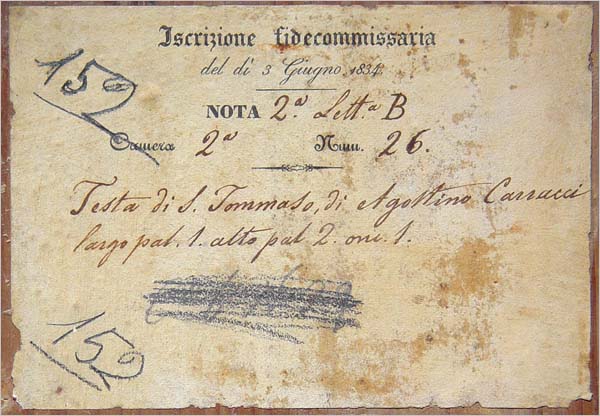 152
Iscrizione fidecommissaria
del dì 3 Giugno 1834.
NOTA 2.ª Lett.ª B
Camera 2ª Num. 26.
Testa di S. Tommaso, di Agostino Carracci
largo pal. 1. alto pal 2. onc. 1.
152